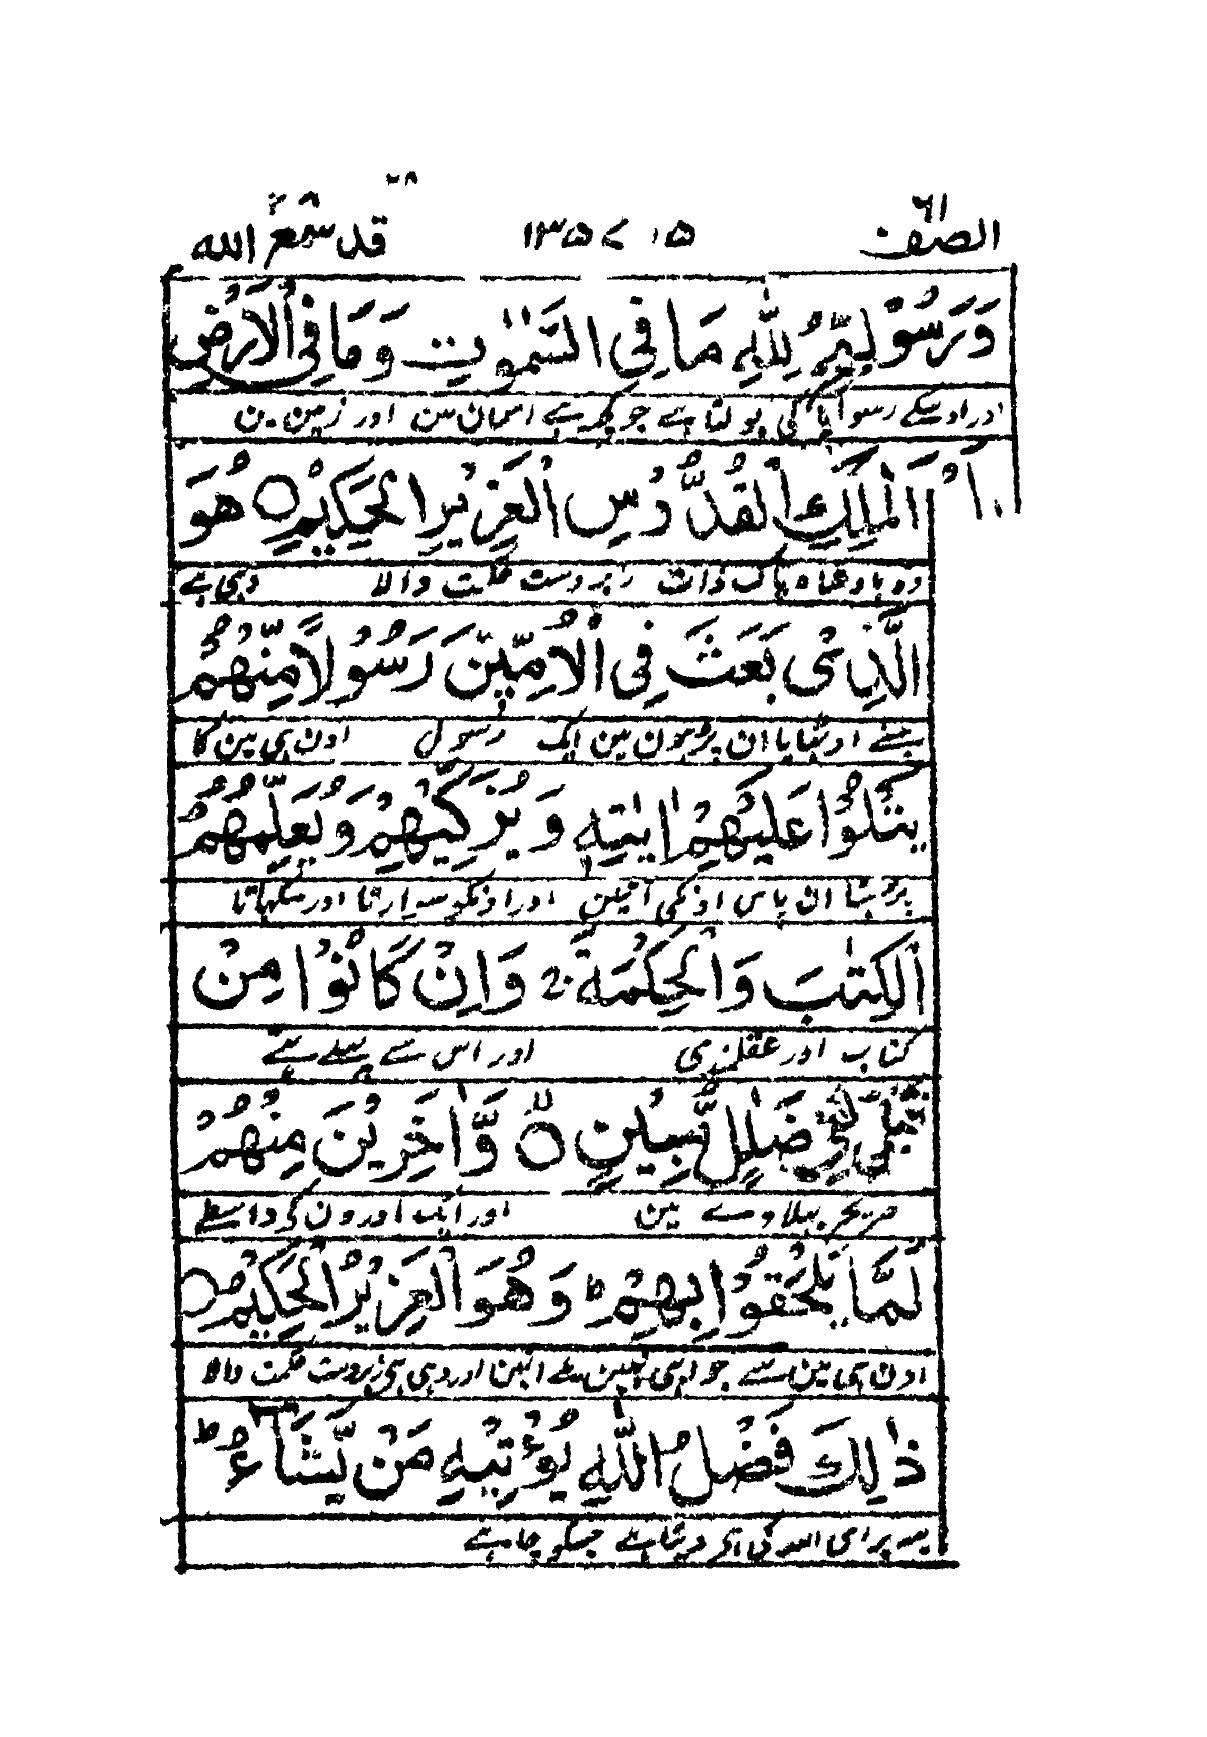 الصف ٦١ ١٣٥٧ ١٥ قد سمع الله ٢٨
وَرَسُوْلِهٖ لِلّٰهِ مَا فِي السَّمٰوٰتِ وَمَا فِي الْاَرْضِ
اور اوسکے رسول کی بولتا ہے جو کچھ ہے اسمان مین اور زمین مین
الْمَلِكِ الْقُدُّوْسِ الْعَزِيْزِ الْحَكِيْمِ ○ هُوَ
وہ بادشاہ پاک ذات زبردست حکمت والا وہی ہے
الَّذِيْ بَعَثَ فِي الْاُمِّيّٖنَ رَسُوْلًا مِّنْهُمْ
جسنے اوٹھایا ان پڑہون مین ایک رسول اون ہی مین کا
يَتْلُوْا عَلَيْهِمْ اٰيٰتِهٖ وَيُزَكِّيْهِمْ وَيُعَلِّمُهُمُ
پڑہتا ان پاس اونکی آیتین اور اونکو سوارتا اور سکہاتا
الْكِتٰبَ وَالْحِكْمَةَ وَاِنْ كَانُوْا مِنْ
کتاب اور عقلمندی اور اس سے پہلے تہے
قَبْلُ لَفِيْ ضَلٰلٍ مُّبِيْنٍ ○ وَّاٰخَرِيْنَ مِنْهُمْ
صریح بہلاوے مین اور ایک اورون کی واسطے
لَمَّا يَلْحَقُوْا بِهِمْ ط وَهُوَ الْعَزِيْزُ الْحَكِيْمُ ○
اون ہی مین سے جو ابہی نہین ملے انہین اور وہی ہی زبردست حکمت والا
ذٰلِكَ فَضْلُ اللّٰهِ يُؤْتِيْهِ مَنْ يَّشَآءُ ط
یہ بڑائی اللہ کی ہے دیتا ہے جسکو چاہے